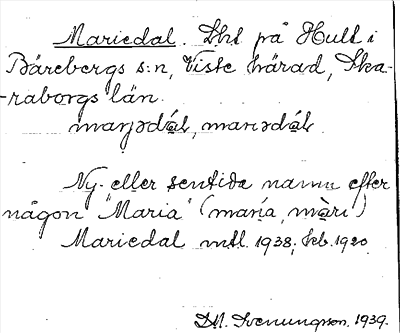 Mariedal. Lht på Hult i
Bärebergs s:n, Viste härad, Ska-
-raborgs län.
marjədál, mariədál.
Ny- eller sentida namn efter
någon "Maria" (maría, màri)
Mariedal mtl. 1938; kb. 1920
D.H. Svenungsson. 1939.